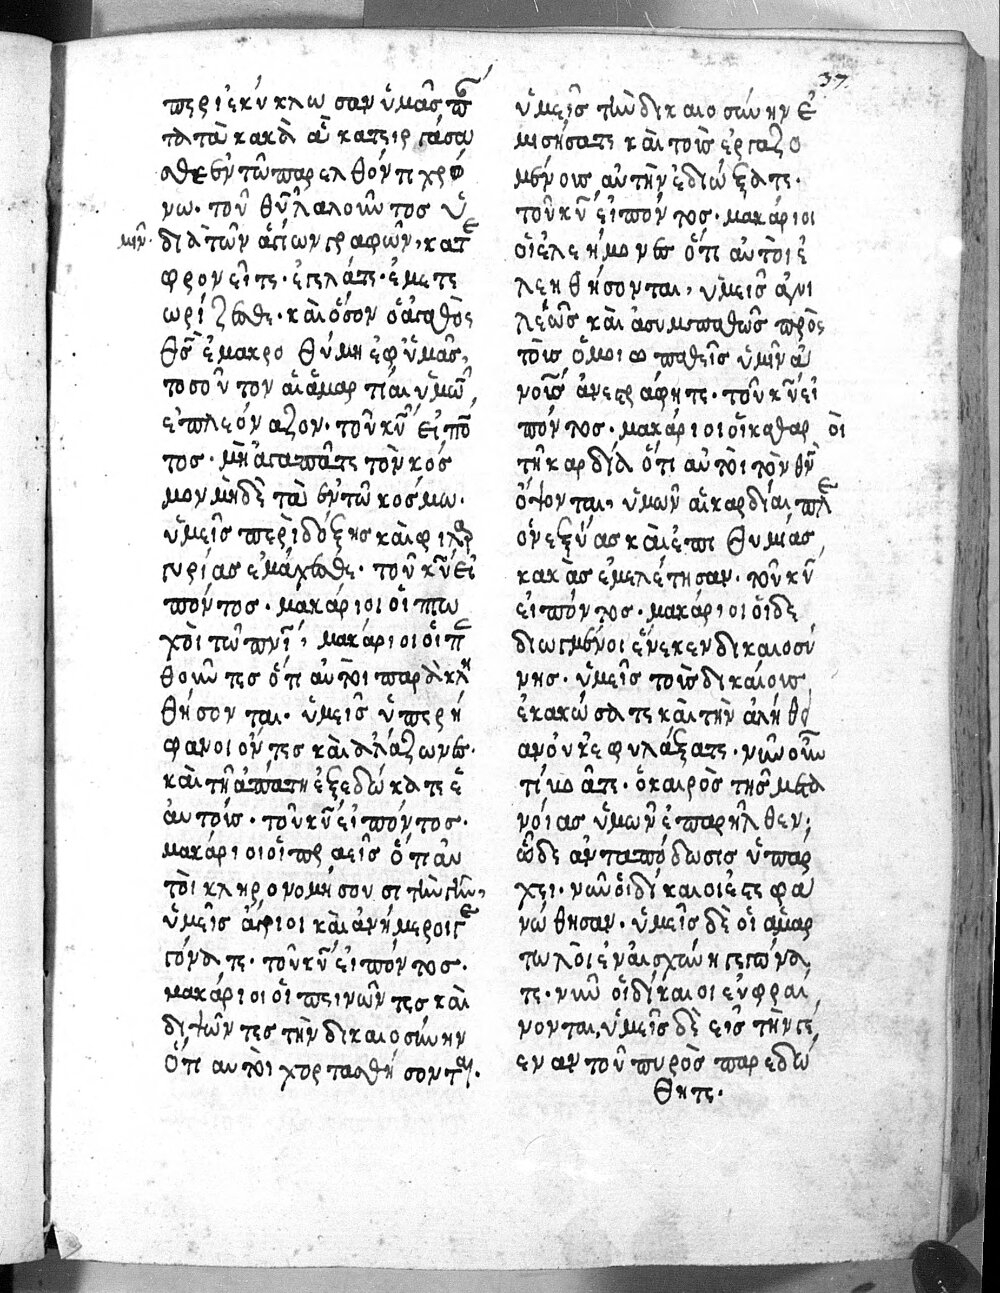 37.
περιεκύκλωσαν ὑμᾶς π
τὰ τὰ κακὰ ἃ κατειργάσα
σθε ἐν τῶ παρελθόντι χρό
νω· τοῦ θῦ λαλοῦντος ὑ
μῖν· διὰ τῶν ἁγίων γραφῶν, κατε
φρονεῖτε· ἐγελᾶτε· ἐμετε
ωρίζεσθε· καὶ ὅσον ὁ ἀγαθὸς
θς ἐμακροθύμη ἐφ ὑμᾶς,
τοσοῦτον αἱ ἁμαρτίαι ὑμῶν
ἐπλεόναζον· τοῦ κῦ εἰπό
τος· μὴ ἀγαπᾶτε τὸν κόσ
μον μηδὲ τὰ ἐν τῶ κοσμω·
ὑμεῖς περὶ δόξης καὶ φιλαρ
γυρίας ἐμάχεσθε· τοῦ κῦ εἰ
πόντος· μακάριοι οἱ πτω
χοὶ τῶ πνι, μακάριοι οἱ πε
θοῦντες ὅτι αὐτοὶ παρακλη
θήσονται· ὑμεῖς ὑπερή
φανοι ὄντες καὶ ἀλάζωνες·
καὶ τῆ ἀπάτη ἐξεδώκατε ἑ
αυτοίς· τοῦ κῦ εἰπόντος·
μακάριοι οἱ πραεῖς ὅτι αὐ
τοὶ κληρονομήσουσι τὴν γῆν,
ὑμεῖς ἄγριοι καὶ ἀνήμεροι γε
γόνατε· τοῦ κῦ εἰπόντος·
μακάριοι οἱ πεινῶντες καὶ
διψῶντες τὴν δικαιοσύνην
ὅτι αυτοὶ χορτασθήσονται.
ὑμεῖς τὴν δικαιοσύνην ἐ
μισήσατε καὶ τοὺς ἐργαζο
μένους αὐτὴν ἐδιώξατε·
τοῦ κῦ εἰπόντος· μακάριοι
οἱ ἐλεήμονες ὅτι αὐτοὶ ἐ
λεηθήσονται, ὑμεῖς ἀνι
λεῶς καὶ ἀσυμπαθῶς πρὸς
τοὺς ὁμοιοπαθεῖς ὑμῖν ἀ
νοῖς ἀνεστράφητε· τοῦ κῦ εἰ
πόντος· μακάριοι οἱ καθαροὶ
τῆ καρδία ὅτι αὐτοὶ τὸν θν
ὄψονται, ὑμῶν αἱ καρδίαι πλε
ονεξίας καὶ ἐπιθυμίας
κακὰς ἐμελέτησαν· τοῦ κῦ
εἰπόντος· μακάριοι οἱ δε
διωγμένοι ἕνεκεν δικαιοσύ
νης· ὑμεῖς τοὺς δικαίους
ἐκακώσατε καὶ τὴν ἀλήθει
αν οὐκ ἐφυλάξατε· νῦν οὖν
τί κοᾶτε· ὁ καιρὸς τῆς μετα
νοίας ὑμῶν ἐπαρῆλθεν,
ὧδε ἀνταπόδωσις ὑπάρ
χει· νῦν οἱ δίκαιοι ἐστεφα
νώθησαν· ὑμεῖς δὲ οἱ ἁμαρ
τωλοὶ ἐν αἰσχύνη γεγόνα
τε· νῦν οἱ δίκαιοι εὐφραί
νονται, ὑμεῖς δὲ εἰς τὴν γέ
ενναν τοῦ πυρὸς παρεδώ
θητε·